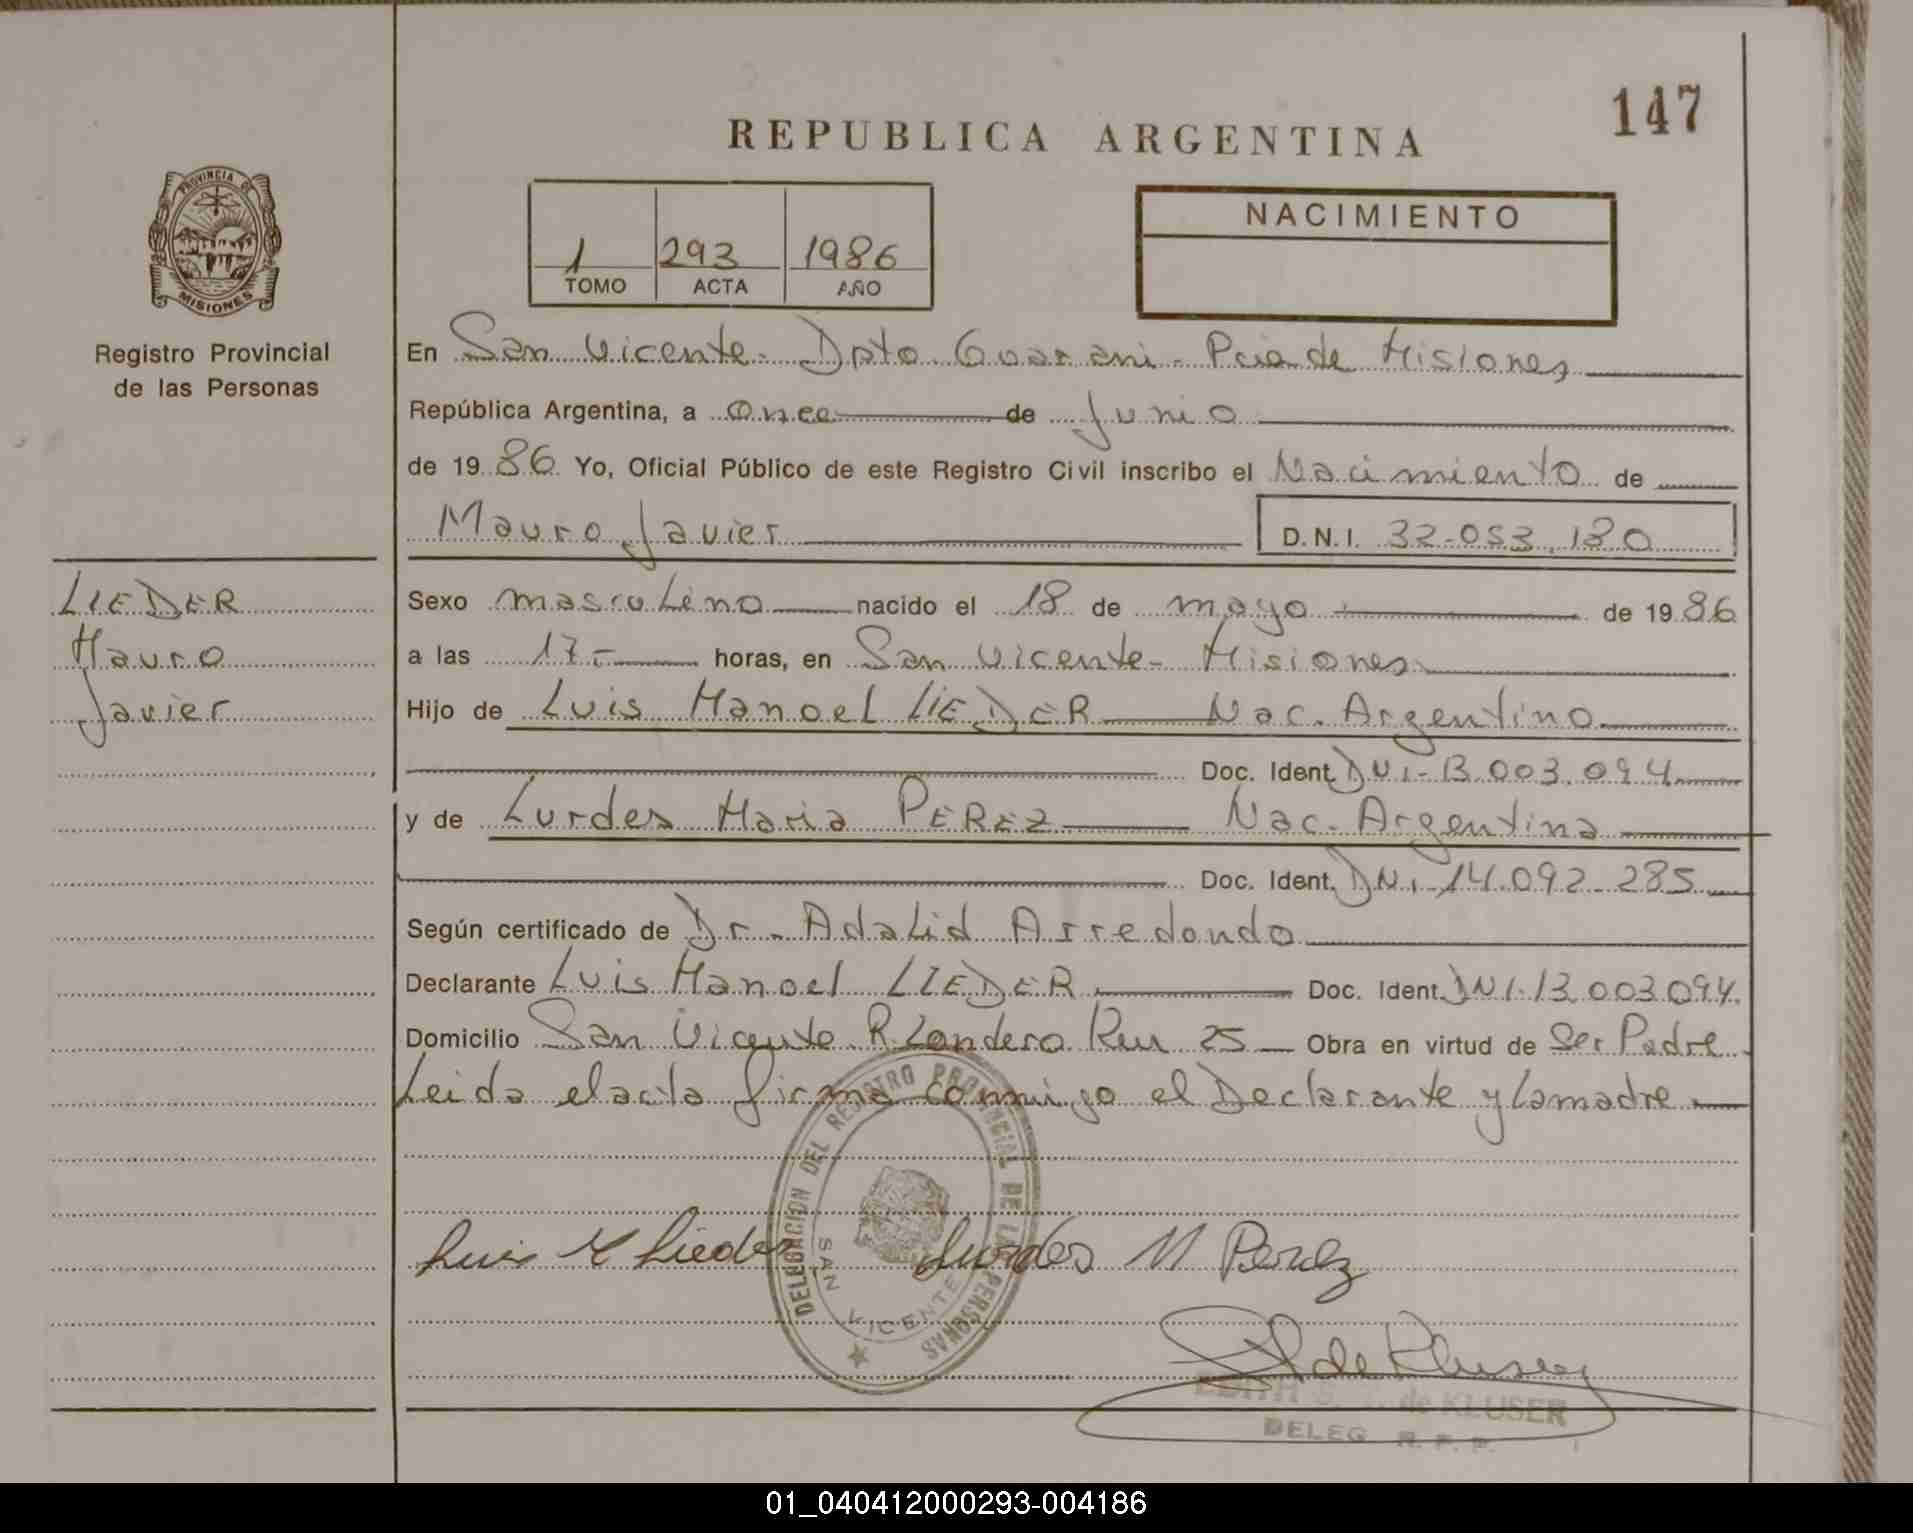 147
REPUBLICA ARGENTINA
PROVINCIA DE
MISIONES
Registro Provincial
de las Personas
1 293 1986
TOMO ACTA AÑO
NACIMIENTO
En San Vicente - Dpto Guarani - Pcia de Misiones
República Argentina, a once de Junio
de 1986 Yo, Oficial Público de este Registro Civil inscribo el Nacimiento de
Mauro Javier D.N.I. 32-053.180
LIEDER
Mauro
Javier
Sexo masculino nacido el 18 de mayo de 1986
a las 17- horas, en San Vicente - Misiones
Hijo de Luis Manoel LIEDER Nac. Argentino
Doc. Ident. DNI-13.003.094
y de Lurdes Maria PEREZ Nac. Argentina
Doc. Ident. DNI-14.092-285
Según certificado de Dr. Adalid Arredondo
Declarante Luis Manoel LIEDER Doc. Ident. DNI-13.003.094.
Domicilio San Vicente R. Londero Km 25 Obra en virtud de Ser Padre
Leida el acta firma conmigo el Declarante y la madre
Luis M Lieder Lurdes M Perez
DELEGACION DEL REGISTRO PROVINCIAL DE LAS PERSONAS
SAN VICENTE
de Kluser
EDITH de KLUSER
DELEG R. P. P.
01_040412000293-004186